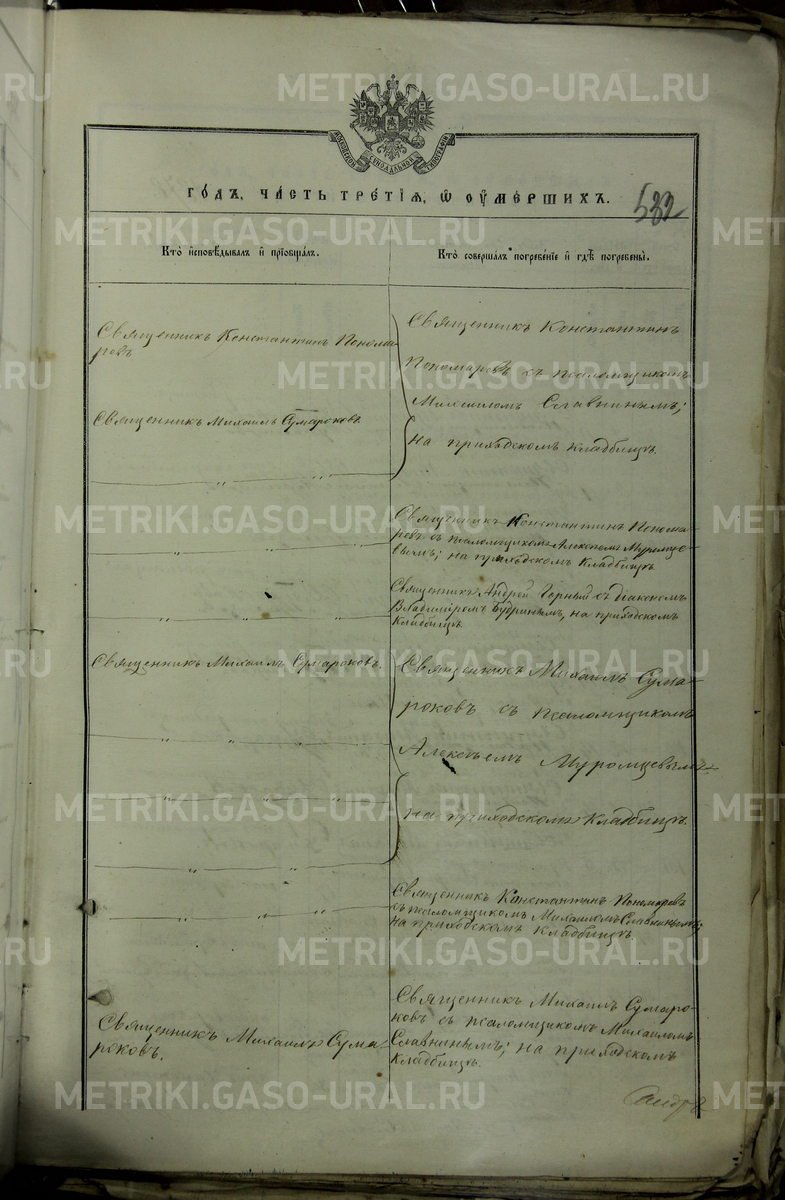 METRIKI.GASO-URAL.RU
МОСКОВСКОЙ СѴНОДАЛЬНОЙ ТИПОГРАФІИ
ГО́ДЪ, ЧА́СТЬ ТРЕ́ТІѦ, Ѿ ОУ҆МЕ́РШИХЪ.
532
Кто̀ и҆сповѣ́дывалъ и҆ прїѻбща́лъ.
Кто̀ соверша́лъ погребе́нїе и҆ гдѣ̀ погребены̀.
Священникъ Константинъ Понома-
ревъ
Священникъ Михаилъ Сумароковъ
" "
Священникъ Константинъ
Пономаревъ съ псаломщикомъ
Михаиломъ Славнинымъ;
на приходскомъ кладбищѣ.
" " "
Священникъ Константинъ Понома-
ревъ съ псаломщикомъ Алексѣемъ Муромце-
вымъ; на приходскомъ кладбищѣ.
" " "
Священникъ Андрей Горный съ діакономъ
Владиміромъ Будринымъ, на приходскомъ
кладбищѣ.
Священникъ Михаилъ Сумароковъ.
" " "
" " "
" "
Священникъ Михаилъ Сума-
роковъ съ псаломщикомъ
Алексѣемъ Муромцевымъ;
на приходскомъ кладбищѣ.
" " "
Священникъ Константинъ Пономаревъ
съ псаломщикомъ Михаиломъ Славнинымъ;
на приходскомъ кладбищѣ.
Священникъ Михаилъ Сума-
роковъ.
Священникъ Михаилъ Сумаро-
ковъ съ псаломщикомъ Михаиломъ
Славнинымъ; на приходскомъ
кладбищѣ.